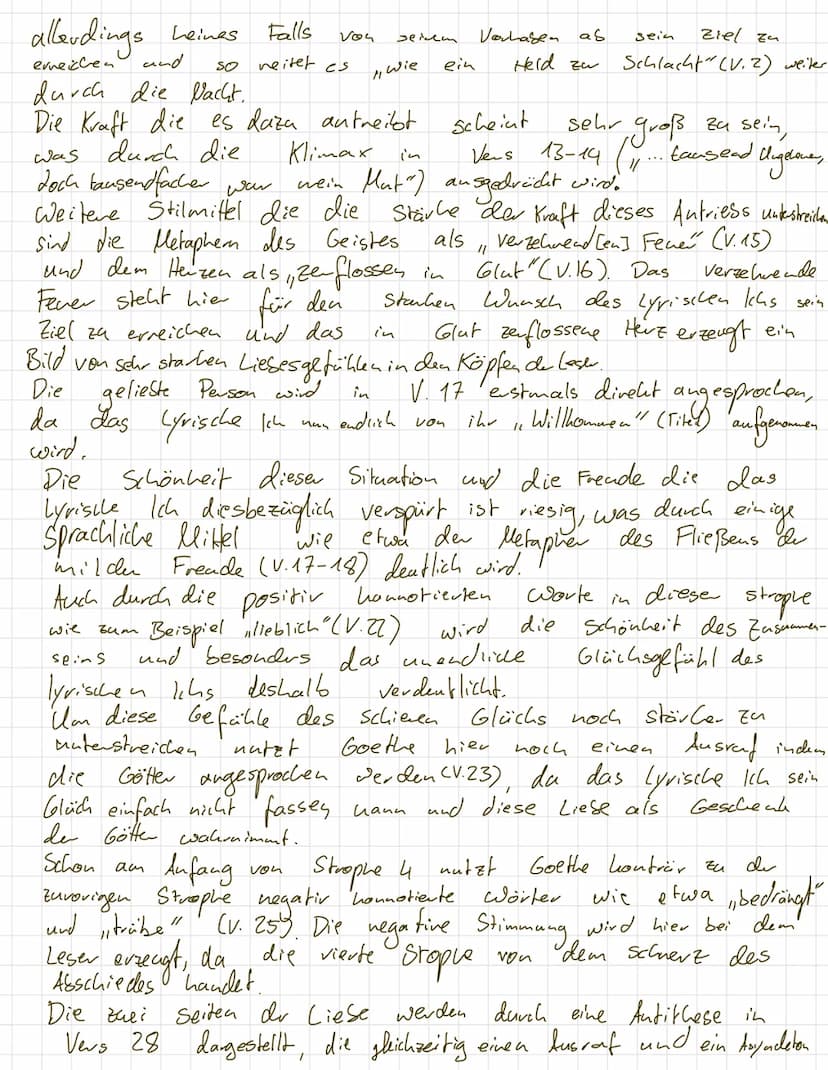 allerdings keines Falls von seinem Vorhaben ab sein Ziel zu
erreichen und so reitet es „wie ein Held zur Schlacht" (V. 2) weiter
durch die Nacht.
Die Kraft die es dazu antreibt scheint sehr groß zu sein,
was durch die Klimax in Vers 13-14 („... tausend Ungeheuer,
doch tausendfacher war mein Mut") ausgedrückt wird.
Weitere Stilmittel die die Stärke der Kraft dieses Antriebs unterstreichen
sind die Metaphern des Geistes als „verzehrend[en] Feuer" (V.15)
und dem Herzen als „zerflossen in Glut" (V.16). Das verzehrende
Feuer steht hier für den starken Wunsch des lyrischen Ichs sein
Ziel zu erreichen und das in Glut zerflossene Herz erzeugt ein
Bild von sehr starken Liebesgefühlen in den Köpfen der Leser.
Die geliebte Person wird in V. 17 erstmals direkt angesprochen,
da das Lyrische Ich nun endlich von ihr „Willkommen" (Titel) aufgenommen
wird.
Die Schönheit dieser Situation und die Freude die das
Lyrische Ich diesbezüglich verspürt ist riesig, was durch einige
Sprachliche Mittel wie etwa der Metapher des Fließens der
milden Freude (V.17-18) deutlich wird.
Auch durch die positiv konnotierten Worte in dieser Strophe
wie zum Beispiel „lieblich" (V.22) wird die Schönheit des Zusammen-
seins und besonders das unendliche Glücksgefühl des
lyrischen Ichs deshalb verdeutlicht.
Um diese Gefühle des schieren Glücks noch stärker zu
unterstreichen nutzt Goethe hier noch einen Ausruf indem
die Götter angesprochen werden (V.23), da das Lyrische Ich sein
Glück einfach nicht fassen kann und diese Liebe als Geschenk
der Götter wahrnimmt.
Schon am Anfang von Strophe 4 nutzt Goethe konträr zu der
zuvorigen Strophe negativ konnotierte Wörter wie etwa „bedrängt"
und „trübe" (V. 25). Die negative Stimmung wird hier bei dem
Leser erzeugt, da die vierte Stophe von dem Schmerz des
Abschiedes handet.
Die zwei Seiten der Liebe werden durch eine Antithese in
Vers 28 dargestellt, die gleichzeitig einen Ausruf und ein Asyndeton